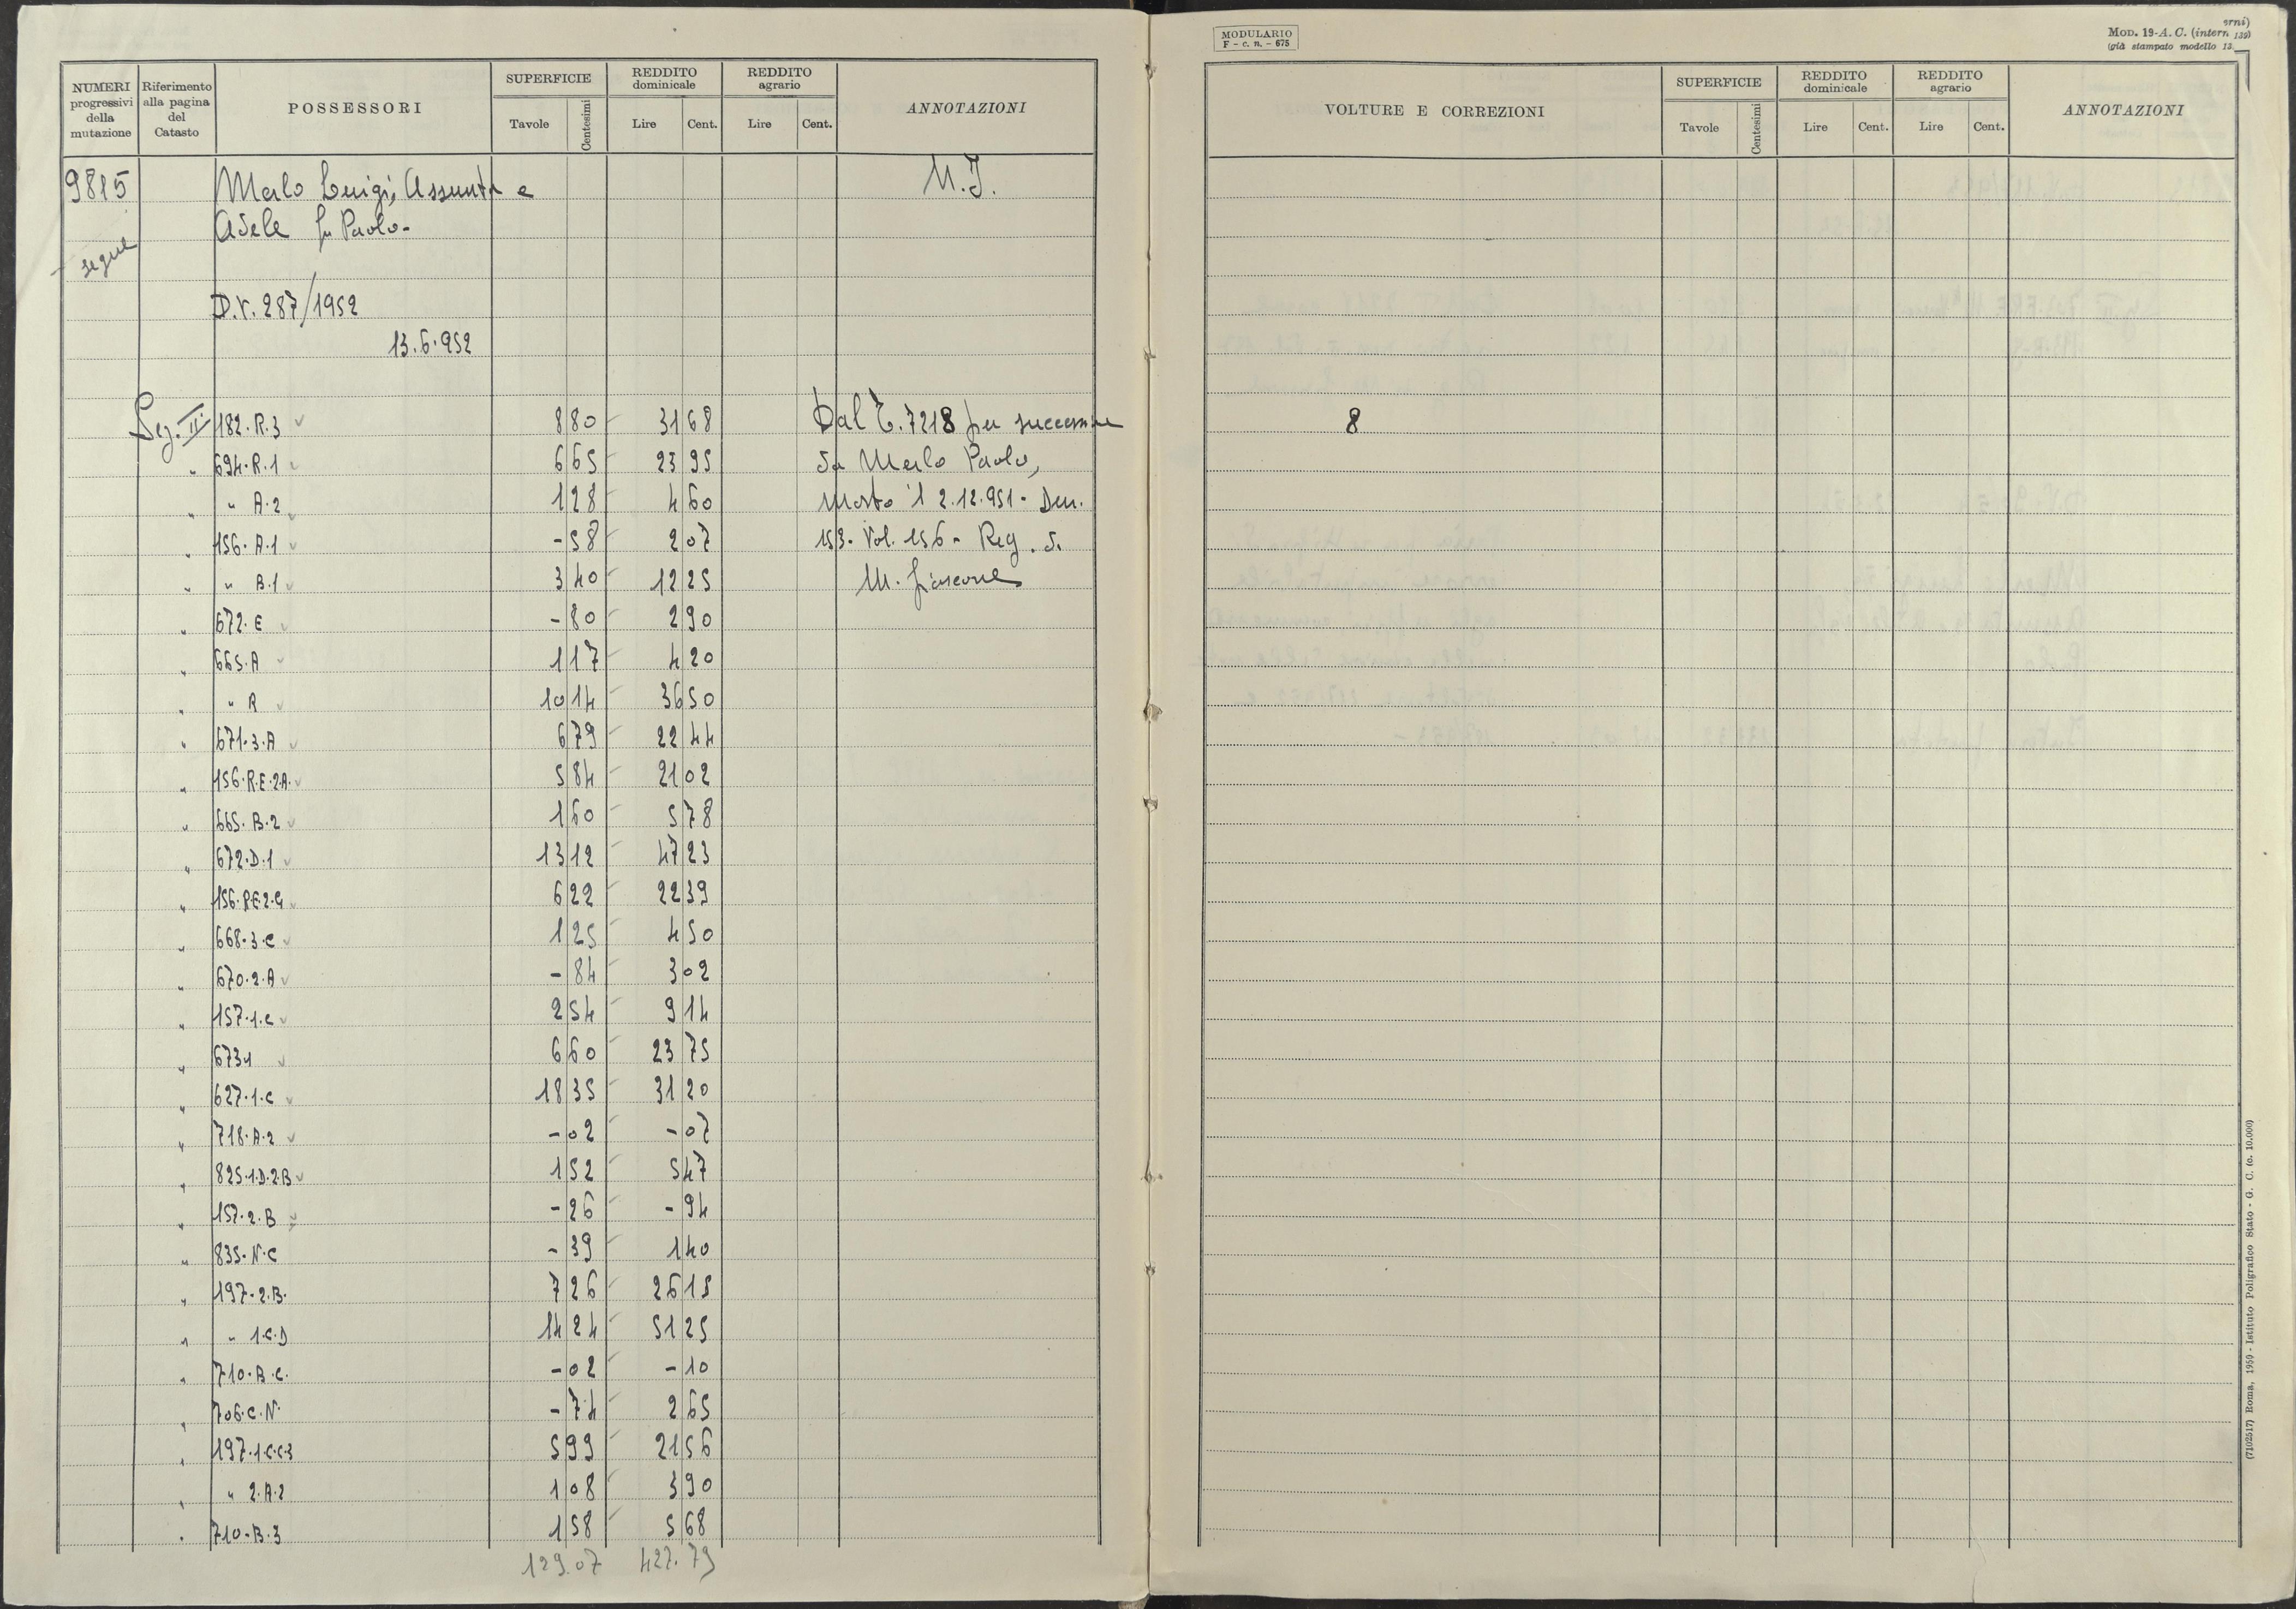 NUMERI progressivi della mutazione | Riferimento alla pagina del Catasto | POSSESSORI | SUPERFICIE Tavole Centesimi | REDDITO dominicale Lire Cent. | REDDITO agrario Lire Cent. | ANNOTAZIONI
9815 Merlo Luigi, Assunta e M.I.
Adele fu Paolo-
segue
D.V. 287/1952
13.6.952
Sez. II 182.R.3 8 80 31 68 Dal C. 7218 per successione
" 694.R.1 6 65 23 95 da Merlo Paolo,
" " A.2 1 28 4 60 morto il 2.12.951- Den.
" 156.A.1 - 58 2 07 153. Vol. 156- Reg. S.
" " B.1 3 40 12 25 M.
" 672.E - 80 2 90
" 665.A 1 17 4 20
" " R 10 14 36 50
" 671.3.A 6 79 22 44
" 156.R.E.2.A. 5 84 21 02
" 665.B.2 1 60 5 78
" 672.D.1 13 12 47 23
" 156.R.E.2.G 6 22 22 39
" 668.3.C 1 25 4 50
" 670.2.A - 84 3 02
" 157.1.C 2 54 9 14
" 673.1 6 60 23 75
" 627.1.C 18 35 31 20
" 718.A.2 - 02 - 07
" 825.1.D.2.B 1 52 5 47
" 157.2.B - 26 - 94
" 835.N.C - 39 1 40
" 197.2.B. 7 26 26 15
" " 1.C.D 14 24 51 25
" 710.B.C. - 02 - 10
" 706.C.N. - 74 2 65
" 197.1.C.C.3 5 99 21 56
" " 2.A.2 1 08 3 90
" 710.B.3 1 58 5 68
129.07 427.79
MODULARIO
F - c. n. - 675
MOD. 19-A. C. (intern
erni)
(già stampato modello 13
139)
VOLTURE E CORREZIONI | SUPERFICIE Tavole Centesimi | REDDITO dominicale Lire Cent. | REDDITO agrario Lire Cent. | ANNOTAZIONI
8
(7102517) Roma, 1950 - Istituto Poligrafico Stato - G. C. (c. 10.000)